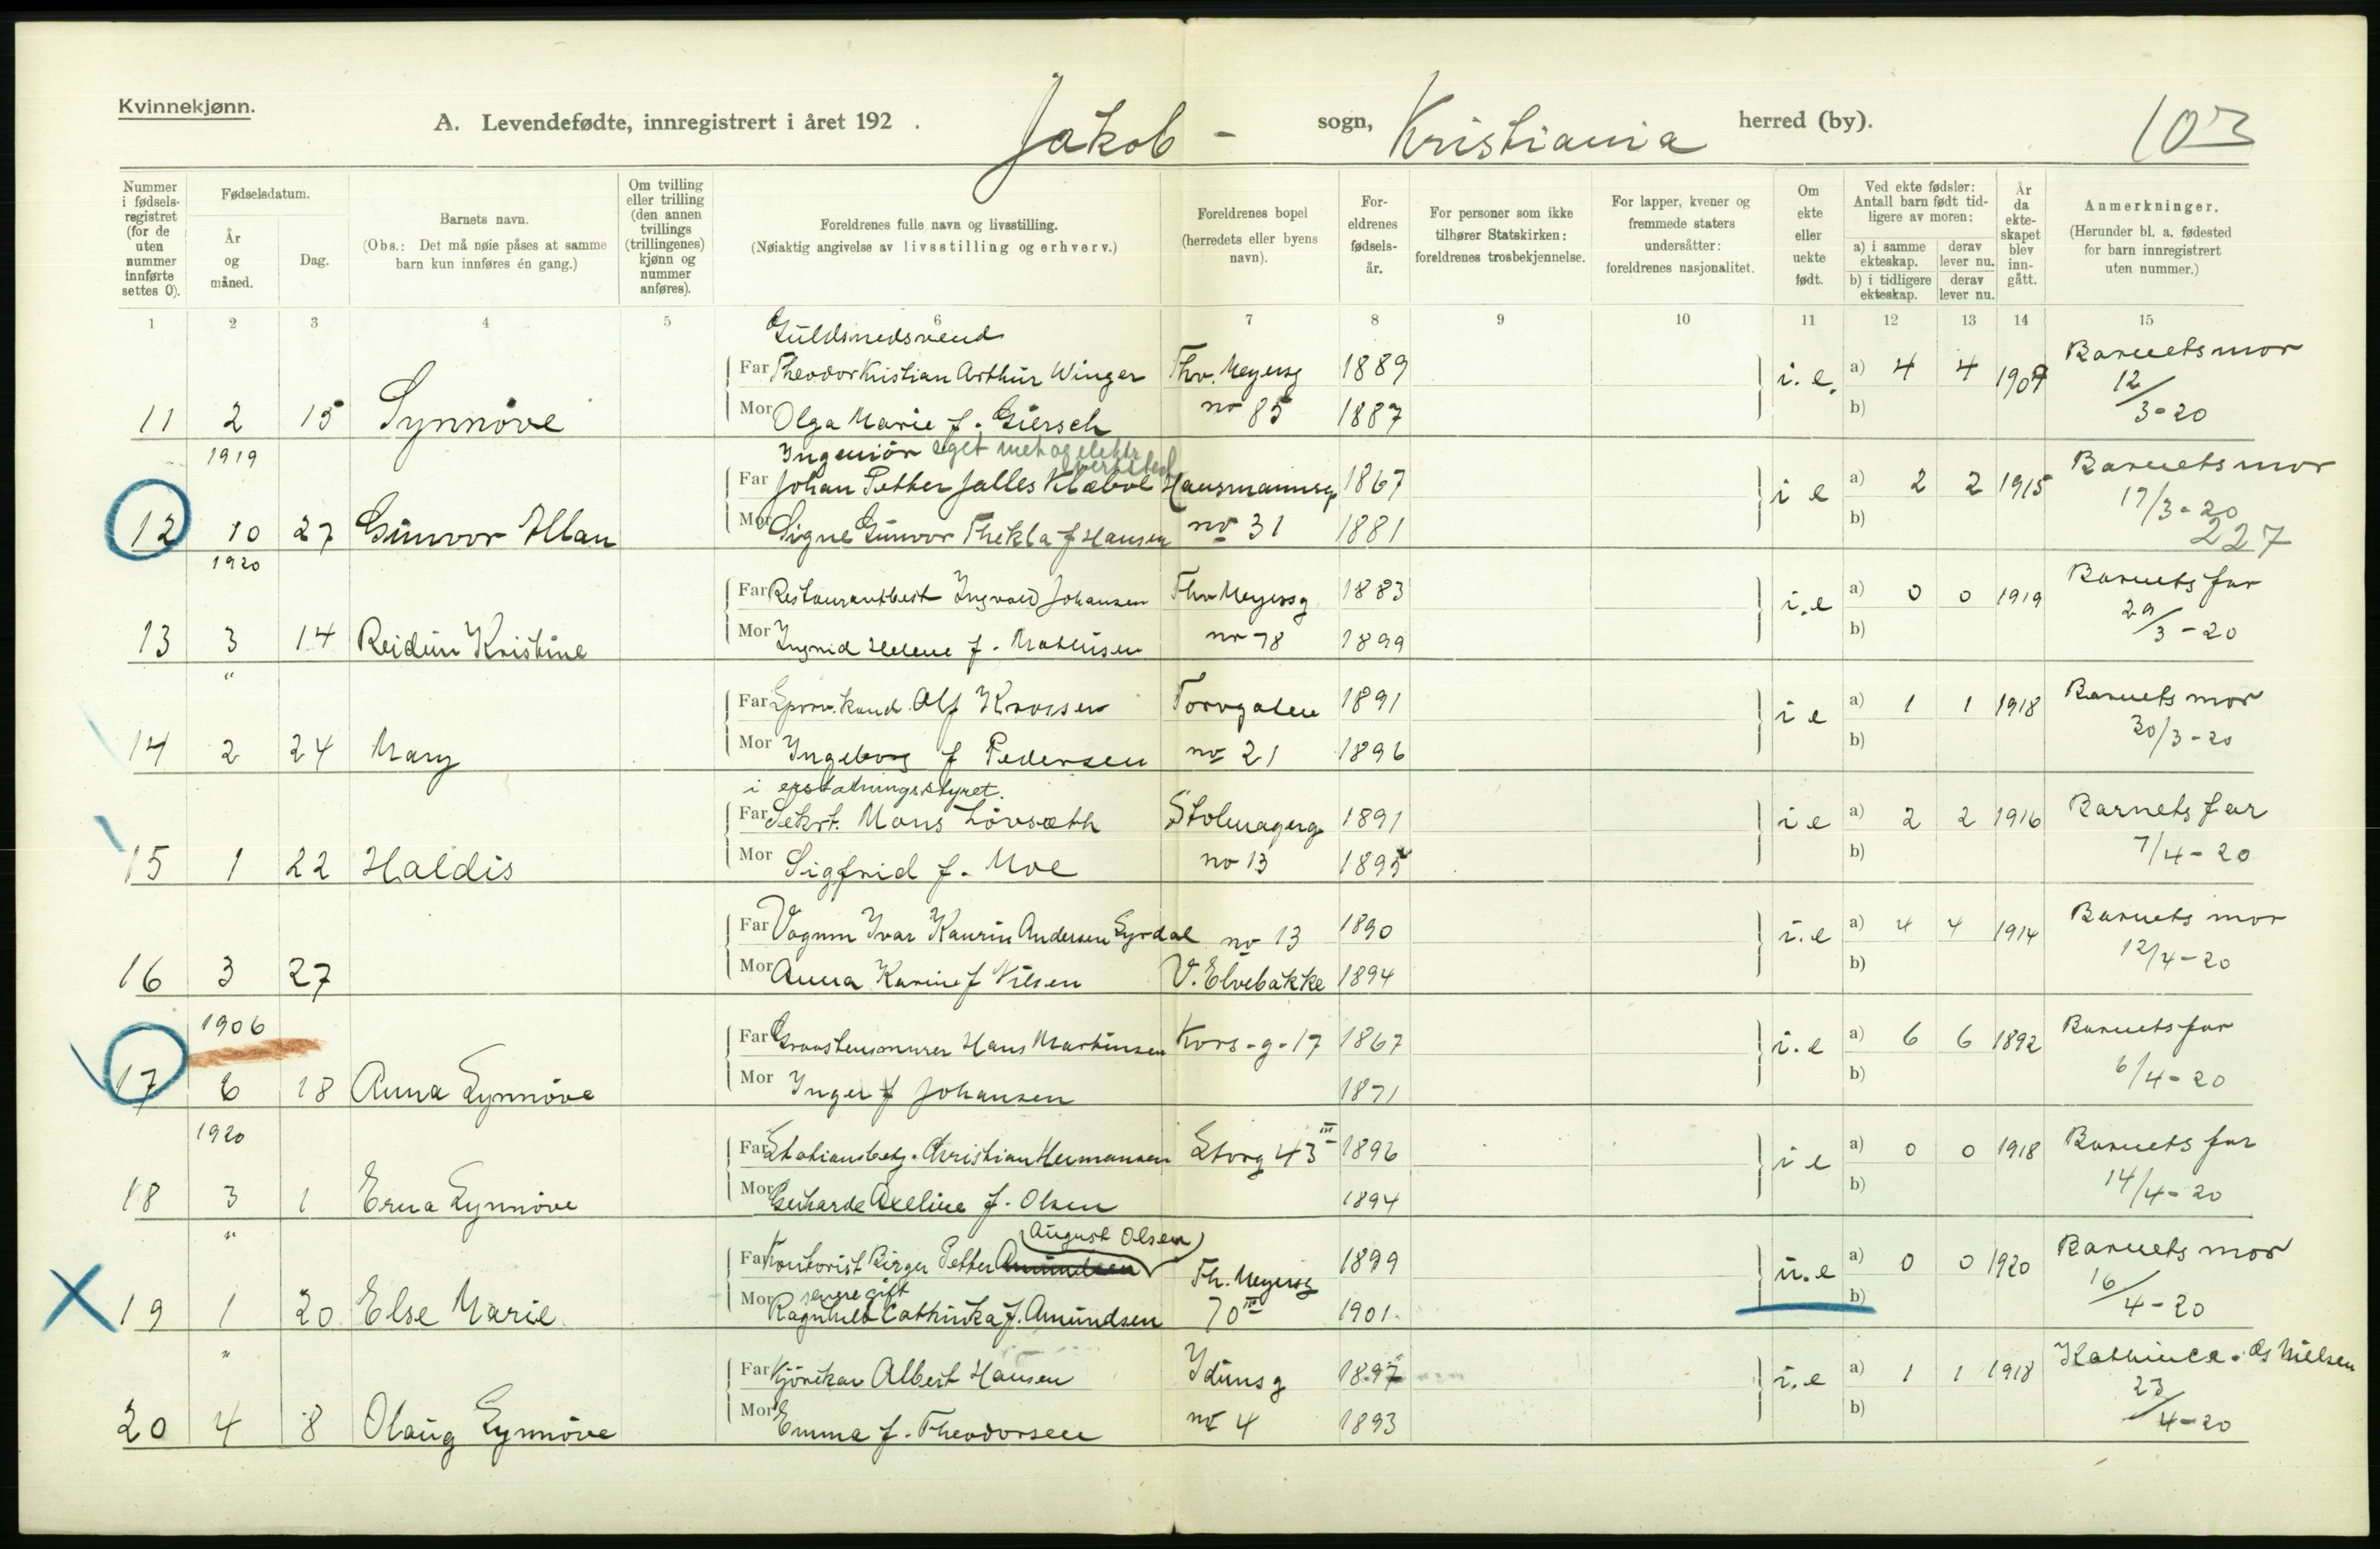 Kvinnekjønn.
A. Levendefødte, innregistrert i året 192 . Jakob - sogn, Kristiania herred (by). 103
Nummer i fødselsregistret (for de uten nummer innførte settes 0).
Fødselsdatum.
År og måned.
Dag.
Barnets navn.
(Obs.: Det må nøie påses at samme barn kun innføres én gang.)
Om tvilling eller trilling (den annen tvillings (trillingenes) kjønn og nummer anføres).
Foreldrenes fulle navn og livsstilling.
(Nøiaktig angivelse av livsstilling og erhverv.)
Foreldrenes bopel (herredets eller byens navn).
Foreldrenes fødselsår.
For personer som ikke tilhører Statskirken: foreldrenes trosbekjennelse.
For lapper, kvener og fremmede staters undersåtter: foreldrenes nasjonalitet.
Om ekte eller uekte født.
Ved ekte fødsler: Antall barn født tidligere av moren:
a) i samme ekteskap. derav lever nu.
b) i tidligere ekteskap. derav lever nu.
År da ekteskapet blev inngått.
Anmerkninger.
(Herunder bl. a. fødested for barn innregistrert uten nummer.)
1 2 3 4 5 6 7 8 9 10 11 12 13 14 15
Guldsmedsvend
Far Theodor Kristian Arthur Winger Thv. Meyersg 1889 i.e. a) 4 4 1907 Barnets mor
11 2 15 Synnöve Mor Olga Marie f. Giersch no 85 1887 b) 12/3-20
1919 Ingeniör eget mek og elektr verksted
Far Johan Petter Jalles Klæboe Hausmannsg 1867 i e a) 2 2 1915 Barnets mor
12 10 27 Gunvor Ellan Mor Signe Gunvor Thekla f Hansen no 31 1881 b) 17/3-20
227
1920
Far Restaurantbest Ingvald Johansen Thv Meyersg 1883 i.e a) 0 0 1919 Barnets far
13 3 14 Reidun Kristine Mor Ingrid Helene f. Mathisen no 78 1899 b) 29/3-20
"
Far Alf Krossen Torvgaten 1891 i e a) 1 1 1918 Barnets mor
14 2 24 Mary Mor Ingeborg f Pedersen no 21 1896 b) 30/3-20
i erstatningsstyret.
Far Sekrt. Mons Lövsæth Stolmagerg 1891 i e a) 2 2 1916 Barnets far
15 1 22 Haldis Mor Sigfrid f. Moe no 13 1895 b) 7/4-20
Far Vognm Ivar Kaurin Andersen Syrdal no 13 1890 i.e a) 4 4 1914 Barnets mor
16 3 27 Mor Anna Karine f Nilsen V. Elvebakke 1894 b) 12/4-20
1906
Far Graastensmurer Hans Martinsen Kors-g-17 1867 i.e a) 6 6 1892 Barnets far
17 6 18 Anna Synnöve Mor Inger f Johansen 1871 b) 6/4-20
1920
Far Stationsbetj. Christian Hermansen Storg 43 III 1896 i e a) 0 0 1918 Barnets far
18 3 1 Erna Synnöve Mor Gerharde Axeline f. Olsen 1894 b) 14/4-20
" August Olsen
Far Kontorist Birger Petter Amundsen Th. Meyersg 1899 u.e a) 0 0 1920 Barnets mor
senere gift
19 1 20 Else Marie Mor Ragnhild Cathinka f. Amundsen 70 III 1901. b) 16/4-20
"
Far Kjörekar Albert Hansen Idunsg 1897 i.e a) 1 1 1918 Kathinca. Os Nielsen
20 4 8 Olaug Synnöve Mor Emma f. Theodorsen no 4 1893 b) 23/4-20